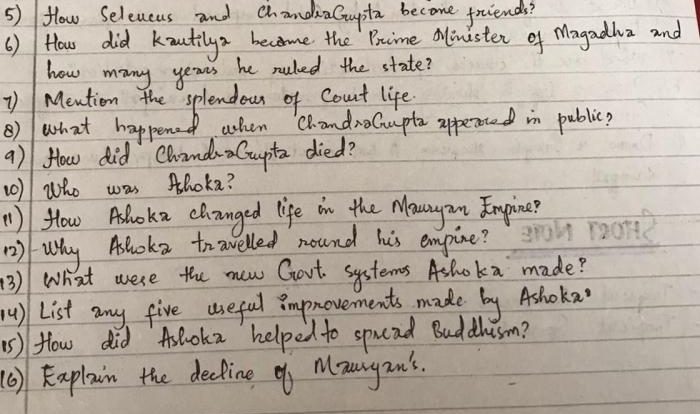 5) How Seleucus and ChandraGupta become friends?
6) How did Kautilya became the Prime Minister of Magadha and
how many years he ruled the state?
7) Mention the splendour of Court life.
8) What happened when ChandraGupta appeared in public?
9) How did ChandraGupta died?
10) Who was Ashoka?
11) How Ashoka changed life in the Mauryan Empire?
12) Why Ashoka travelled round his empire?
SHORT NOTE
13) What were the new Govt. systems Ashoka made?
14) List any five useful improvements made by Ashoka.
15) How did Ashoka helped to spread Buddhism?
16) Explain the decline of Mauryan's.